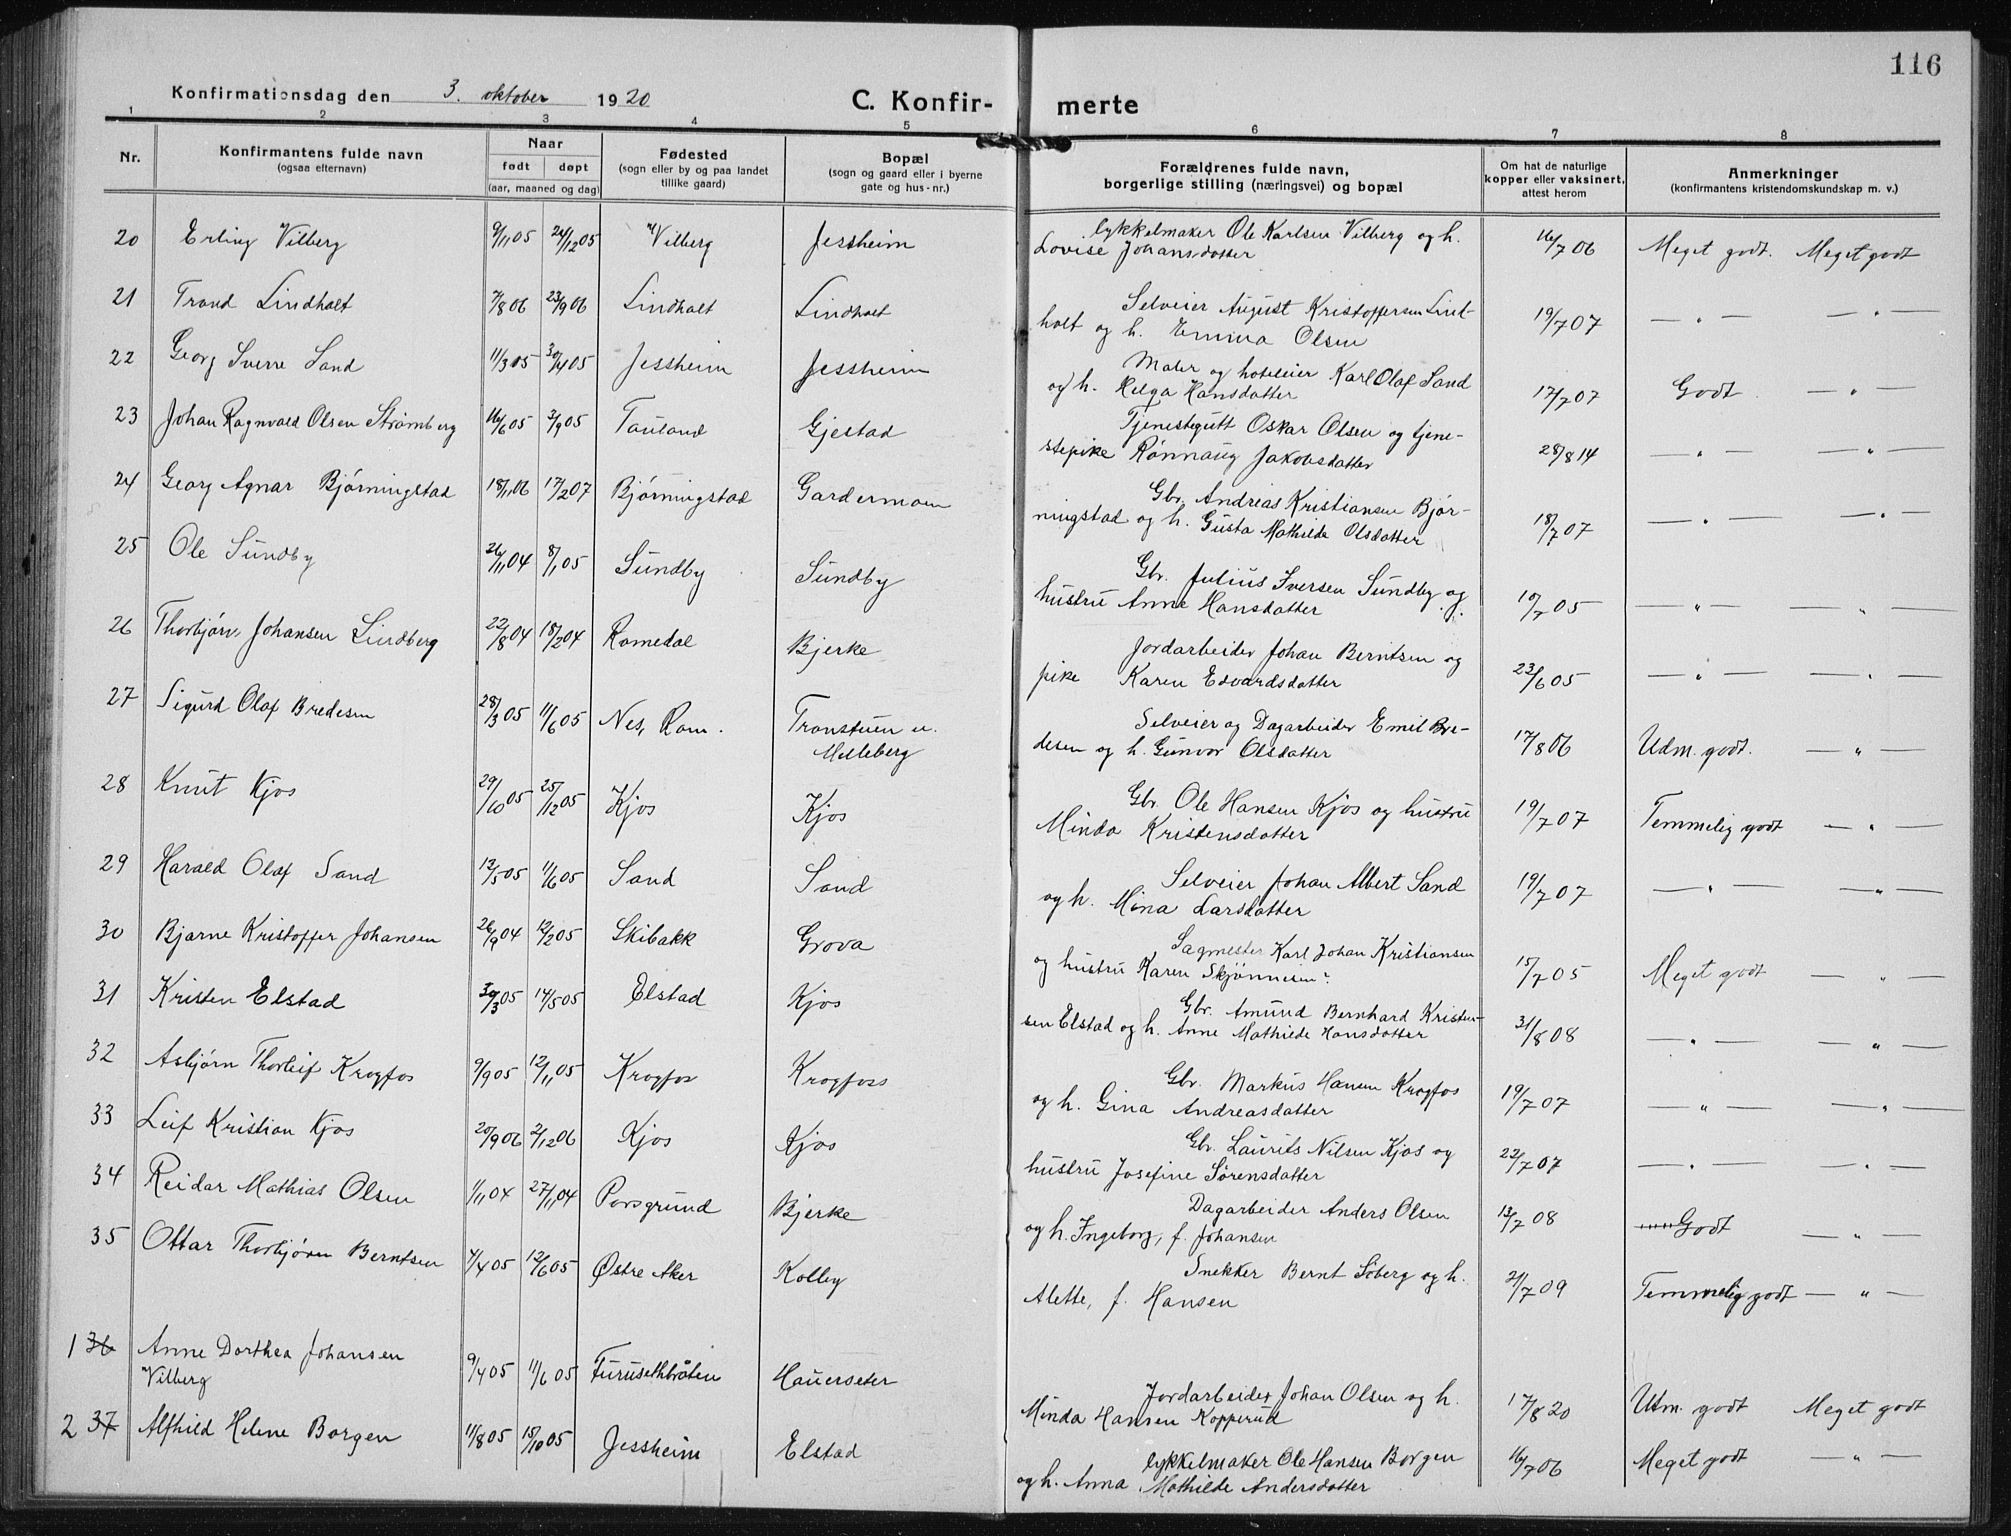 116
Konfirmationsdag den 3. oktober 1920
C. Konfir- merte
1 2 3 4 5 6 7 8
Nr.
Konfirmantens fulde navn
(ogsaa efternavn)
Naar
født døpt
(aar, maaned og dag)
Fødested
(sogn eller by og paa landet
tillike gaard)
Bopæl
(sogn og gaard eller i byerne
gate og hus-nr.)
Forældrenes fulde navn,
borgerlige stilling (næringsvei) og bopæl
Om hat de naturlige
kopper eller vaksinert,
attest herom
Anmerkninger
(konfirmantens kristendomskundskap m. v.)
20 Erling Vilberg 9/11 05 24/12 05 Vilberg Jessheim Cykkelmaker Ole Karlsen Vilberg og h.
Lovise Johansdatter 16/7 06 Meget godt. Meget godt
21 Trond Lindholt 7/8 06 23/9 06 Lindholt Lindholt Selveier August Kristoffersen Lind-
holt og h. Emma Olsen 19/7 07 — " — — " —
22 Georg Sverre Sand 11/3 05 30/4 05 Jessheim Jessheim Maler og hoteleier Karl Olaf Sand
og h. Helga Hansdatter 17/7 07 Godt — " —
23 Johan Ragnvald Olsen Strømberg 16/6 05 3/9 05 Tauland Gjestad Tjenestegutt Oskar Olsen og tjene-
stepike Rønnaug Jakobsdatter 28/8 14 — " — — " —
24 Georg Agnar Bjørningstad 18/11 06 17/2 07 Bjørningstad Gardermoen Gbr. Andreas Kristiansen Bjør-
ningstad og h. Gusta Mathilde Olsdatter 18/7 07 — " — — " —
25 Ole Sundby 26/11 04 8/1 05 Sundby Sundby Gbr. Julius Iversen Sundby og
hustru Anne Hansdatter 10/7 05 — " — — " —
26 Thorbjørn Johansen Lindberg 22/8 04 18/2 04 Romedal Bjerke Jordarbeider Johan Berntsen og
pike Karen Edvardsdatter 23/6 05 — " — — " —
27 Sigurd Olaf Bredesen 28/3 05 11/6 05 Nes, Rom. Tronstuen u.
Melleberg Selveier og Dagarbeider Emil Bre-
desen og h. Gunvor Olsdatter 17/8 06 Udm. godt. — " —
28 Knut Kjos 29/10 05 25/12 05 Kjos Kjos Gbr. Ole Hansen Kjos og hustru
Minda Kristensdatter 19/7 07 Temmelig godt — " —
29 Harald Olaf Sand 13/5 05 11/6 05 Sand Sand Selveier Johan Albert Sand
og h. Mina Larsdatter 19/7 07 — " — — " —
30 Bjarne Kristoffer Johansen 26/9 04 12/2 05 Skibakk Grova Sagmester Karl Johan Kristiansen
og hustru Karen Skjønnesen? 15/7 05 Meget godt — " —
31 Kristen Elstad 30/3 05 14/5 05 Elstad Kjos Gbr. Amund Bernhard Kristen-
sen Elstad og h. Anne Mathilde Hansdatter 31/8 08 — " — — " —
32 Asbjørn Thorleif Krogfos 9/9 05 12/11 05 Krogfos Krogfoss Gbr. Markus Hansen Krogfos
og h. Gina Andreasdatter 19/7 07 — " — — " —
33 Leif Kristian Kjos 20/9 06 2/12 06 Kjos Kjos Gbr. Laurits Nilsen Kjos og
hustru Josefine Sørensdatter 22/7 07 — " — — " —
34 Reidar Mathias Olsen 1/11 04 27/11 04 Porsgrund Bjerke Dagarbeider Anders Olsen
og h. Ingeborg, f. Johansen 13/7 08 Godt — " —
35 Ottar Thorbjørn Berntsen 4/4 05 12/6 05 Østre Aker Kolley Snekker Bernt Soberg og h.
Alette, f. Hansen 21/7 09 Temmelig godt — " —
1 36 Anne Dorthea Johansen
Vilberg 9/4 05 11/6 05 Furusethbråten Hauerseter Jordarbeider Johan Olsen og h.
Minda Hansen Kopperud 17/8 20 Utm. godt Meget godt
2 37 Alfhild Helene Borgen 11/8 05 15/10 05 Jessheim Elstad Cykkelmaker Ole Hansen Borgen
og h. Anna Mathilde Andersdatter 16/7 06 Meget godt — " —